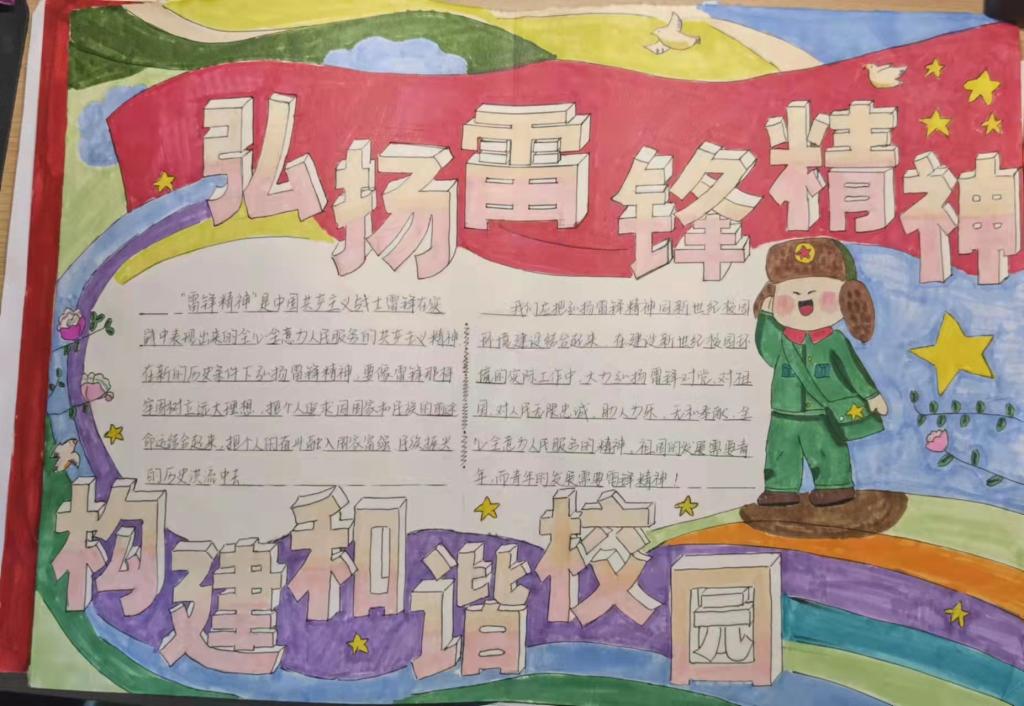 弘扬雷锋精神
"雷锋精神"是中国共产主义战士雷锋在实
践中表现出来的全心全意为人民服务的共产主义精神
在新的历史条件下弘扬雷锋精神,要像雷锋那样
牢固树立远大理想,把个人追求同国家和民族的前途
命运结合起来,把个人的奋斗融入国家富强 民族振兴
的历史洪流中去
我们应把弘扬雷锋精神同新世纪校园
环境建设结合起来,在建设新世纪校园环
境的实际工作中,大力弘扬雷锋对党、对祖
国、对人民无限忠诚、助人为乐、无私奉献、全
心全意为人民服务的精神、祖国的发展需要青
年,而青年的发展需要雷锋精神!
构建和谐校园